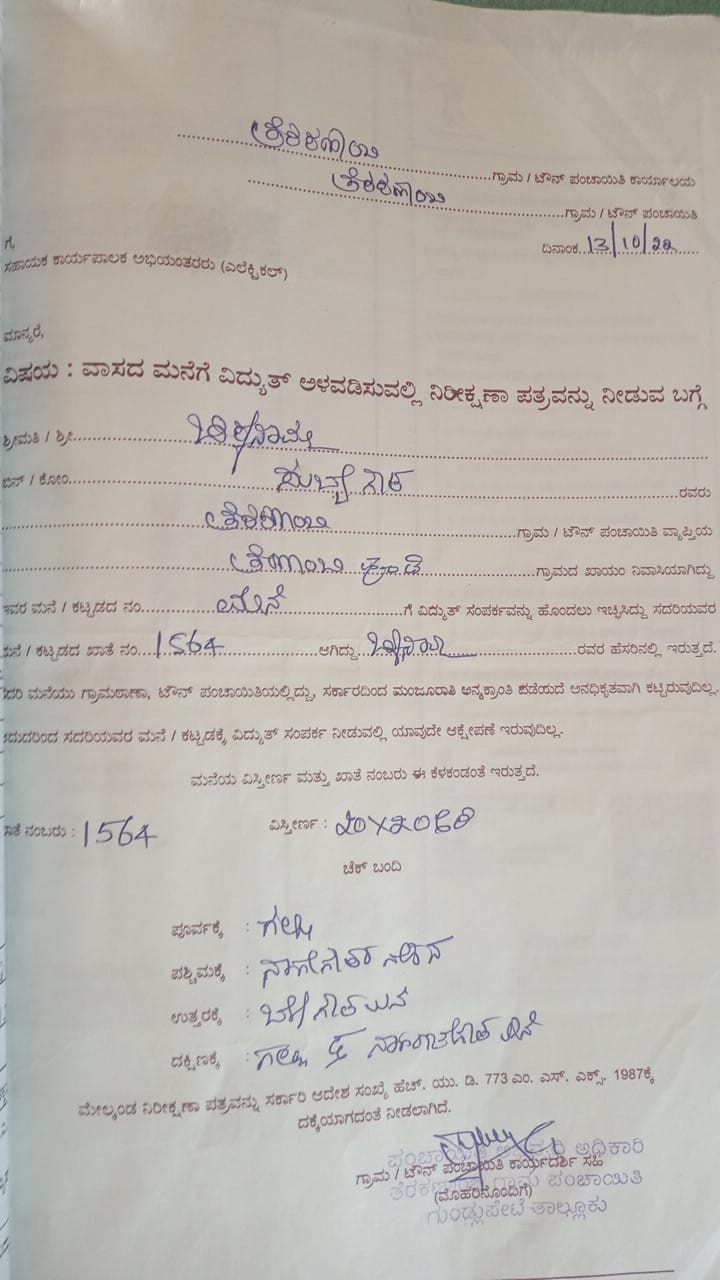 ತೆರಕಣಾಂಬಿ
ಗ್ರಾಮ / ಟೌನ್ ಪಂಚಾಯಿತಿ ಕಾರ್ಯಾಲಯ
ತೆರಕಣಾಂಬಿ
ಗ್ರಾಮ / ಟೌನ್ ಪಂಚಾಯಿತಿ
ದಿನಾಂಕ 13/10/22
ಗೆ,
ಸಹಾಯಕ ಕಾರ್ಯಪಾಲಕ ಅಭಿಯಂತರರು (ಎಲೆಕ್ಟ್ರಿಕಲ್)
ಮಾನ್ಯರೆ,
ವಿಷಯ : ವಾಸದ ಮನೆಗೆ ವಿದ್ಯುತ್ ಅಳವಡಿಸುವಲ್ಲಿ ನಿರೀಕ್ಷಣಾ ಪತ್ರವನ್ನು ನೀಡುವ ಬಗ್ಗೆ
ಶ್ರೀಮತಿ / ಶ್ರೀ
ಬಿನ್ / ಕೋಂ ರವರು
ತೆರಕಣಾಂಬಿ ಗ್ರಾಮ / ಟೌನ್ ಪಂಚಾಯಿತಿ ವ್ಯಾಪ್ತಿಯ
ಗ್ರಾಮದ ಖಾಯಂ ನಿವಾಸಿಯಾಗಿದ್ದು
ಇವರ ಮನೆ / ಕಟ್ಟಡದ ನಂ. ಮನೆ ಗೆ ವಿದ್ಯುತ್ ಸಂಪರ್ಕವನ್ನು ಹೊಂದಲು ಇಚ್ಛಿಸಿದ್ದು ಸದರಿಯವರ
ಮನೆ / ಕಟ್ಟಡದ ಖಾತೆ ನಂ. 1564 ಆಗಿದ್ದು ರವರ ಹೆಸರಿನಲ್ಲಿ ಇರುತ್ತದೆ.
ಮನೆಯು ಗ್ರಾಮಠಾಣಾ, ಟೌನ್ ಪಂಚಾಯಿತಿಯಲ್ಲಿದ್ದು, ಸರ್ಕಾರದಿಂದ ಮಂಜೂರಾತಿ ಅನ್ಯಕ್ರಾಂತಿ ಪಡೆಯದೆ ಅನಧಿಕೃತವಾಗಿ ಕಟ್ಟಿರುವುದಿಲ್ಲ.
ಸದರಿಯವರ ಮನೆ / ಕಟ್ಟಡಕ್ಕೆ ವಿದ್ಯುತ್ ಸಂಪರ್ಕ ನೀಡುವಲ್ಲಿ ಯಾವುದೇ ಆಕ್ಷೇಪಣೆ ಇರುವುದಿಲ್ಲ.
ಮನೆಯ ವಿಸ್ತೀರ್ಣ ಮತ್ತು ಖಾತೆ ನಂಬರು ಈ ಕೆಳಕಂಡಂತೆ ಇರುತ್ತದೆ.
ನಂಬರು : 1564 ವಿಸ್ತೀರ್ಣ :
ಚೆಕ್ ಬಂದಿ
ಪೂರ್ವಕ್ಕೆ : ಗಲ್ಲಿ
ಪಶ್ಚಿಮಕ್ಕೆ :
ಉತ್ತರಕ್ಕೆ :
ದಕ್ಷಿಣಕ್ಕೆ : ಗಲ್ಲಿ
ಮೇಲ್ಕಂಡ ನಿರೀಕ್ಷಣಾ ಪತ್ರವನ್ನು ಸರ್ಕಾರಿ ಆದೇಶ ಸಂಖ್ಯೆ ಹೆಚ್. ಯು. ಡಿ. 773 ಎಂ. ಎಸ್. ಎಕ್ಸ್. 1987ಕ್ಕೆ
ದಕ್ಕೆಯಾಗದಂತೆ ನೀಡಲಾಗಿದೆ.
ಪಂಚಾಯಿತಿ ಅಭಿವೃದ್ಧಿ ಅಧಿಕಾರಿ
ಗ್ರಾಮ / ಟೌನ್ ಪಂಚಾಯಿತಿ ಕಾರ್ಯದರ್ಶಿ ಸಹಿ
ತೆರಕಣಾಂಬಿ ಗ್ರಾಮ ಪಂಚಾಯಿತಿ
(ಮೊಹರಿನೊಂದಿಗೆ)
ಗುಂಡ್ಲುಪೇಟೆ ತಾಲ್ಲೂಕು